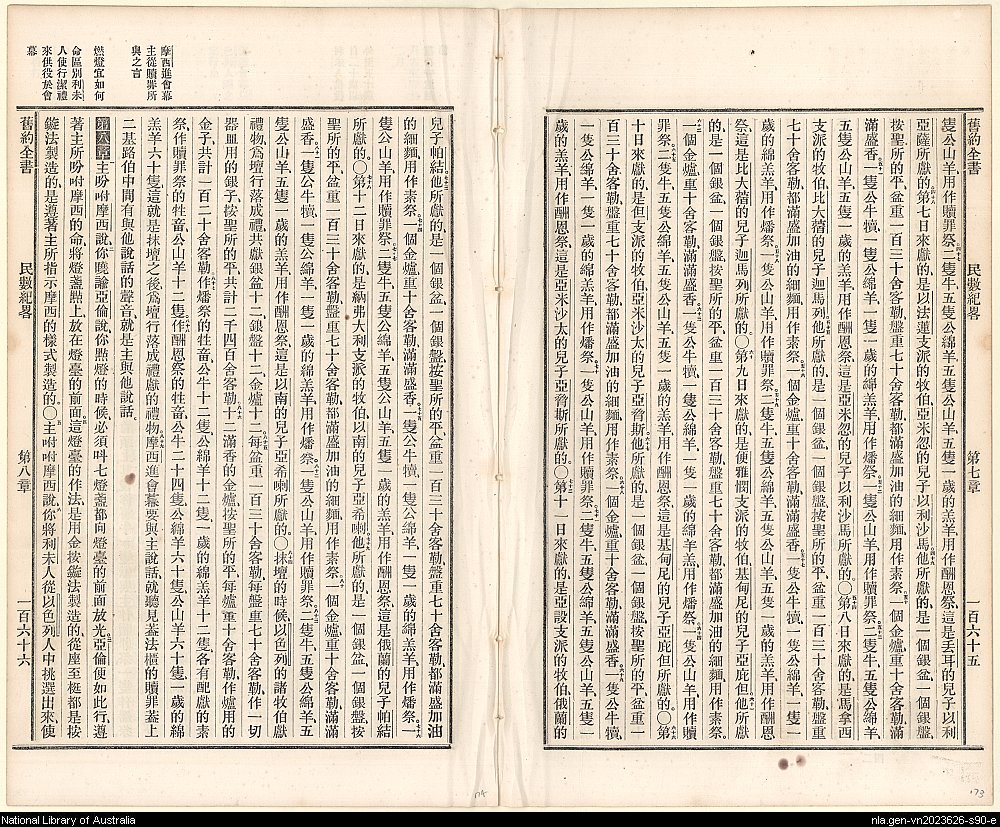 舊約全書 民數紀畧 第七章 一百六十五
隻公山羊用作贖罪祭、二牛五隻公綿羊、五隻公山羊、五隻一歲的羔羊、用作酬恩祭、這是丟耳的兒子以利
亞薩所獻的、○第七日來獻的、是以法蓮支派的牧伯亞米忽的兒子以利沙馬、他所獻的、是一個銀盆、一個銀盤、
按聖所的平、盆重一百三十舍客勒、盤重七十舍客勒、都滿盛加油的細麵、用作素祭、一個金爐重十舍客勒、滿
滿盛香、一隻公牛犢、一隻公綿羊、一隻一歲的綿羔羊、用作燔祭、一隻公山羊、用作贖罪祭、二隻牛、五隻公綿羊、
五隻公山羊、五隻一歲的羔羊、用作酬恩祭、這是亞米忽的兒子以利沙馬所獻的、○第八日來獻的、是馬拿西
支派的牧伯、比大蓿的兒子迦馬列、他所獻的、是一個銀盆、一個銀盤、按聖所的平、盆重一百三十舍客勒、盤重
七十舍客勒、都滿盛加油的細麵、用作素祭、一個金爐重十舍客勒、滿滿盛香、一隻公牛犢、一隻公綿羊、一隻一
歲的綿羔羊、用作燔祭、一隻公山羊、用作贖罪祭、二隻牛、五隻公綿羊、五隻公山羊、五隻一歲的羔羊、用作酬恩
祭、這是比大蓿的兒子迦馬列所獻的、○第九日來獻的、是便雅憫支派的牧伯、基甸尼的兒子亞庇但、他所獻
的、是一個銀盆、一個銀盤、按聖所的平、盆重一百三十舍客勒、盤重七十舍客勒、都滿盛加油的細麵、用作素祭、
一個金爐重十舍客勒、滿滿盛香、一隻公牛犢、一隻公綿羊、一隻一歲的綿羔羊、用作燔祭、一隻公山羊、用作贖
罪祭、二隻牛、五隻公綿羊、五隻公山羊、五隻一歲的羔羊、用作酬恩祭、這是基甸尼的兒子亞庇但所獻的、○第
十日來獻的、是但支派的牧伯、亞米沙太的兒子亞脅斯、他所獻的、是一個銀盆、一個銀盤、按聖所的平、盆重一
百三十舍客勒、盤重七十舍客勒、都滿盛加油的細麵、用作素祭、一個金爐重十舍客勒、滿滿盛香、一隻公牛犢、
一隻公綿羊、一隻一歲的綿羔羊、用作燔祭、一隻公山羊、用作贖罪祭、二隻牛、五隻公綿羊、五隻公山羊、五隻一
歲的羔羊、用作酬恩祭、這是亞米沙太的兒子亞脅斯所獻的、○第十一日來獻的、是亞設支派的牧伯、俄蘭的
兒子帕結、他所獻的、是一個銀盆、一個銀盤、按聖所的平、盆重一百三十舍客勒、盤重七十舍客勒、都滿盛加油
的細麵、用作素祭、一個金爐重十舍客勒、滿滿盛香、一隻公牛犢、一隻公綿羊、一隻一歲的綿羔羊、用作燔祭、一
隻公山羊、用作贖罪祭、二隻牛、五隻公綿羊、五隻公山羊、五隻一歲的羔羊、用作酬恩祭、這是俄蘭的兒子帕結
所獻的、○第十二日來獻的、是納弗大利支派的牧伯、以南的兒子亞希喇、他所獻的、是一個銀盆、一個銀盤、按
聖所的平、盆重一百三十舍客勒、盤重七十舍客勒、都滿盛加油的細麵、用作素祭、一個金爐重十舍客勒、滿滿
盛香、一隻公牛犢、一隻公綿羊、一隻一歲的綿羔羊、用作燔祭、一隻公山羊、用作贖罪祭、二隻牛、五隻公綿羊、五
隻公山羊、五隻一歲的羔羊、用作酬恩祭、這是以南的兒子亞希喇所獻的、○抹壇的時候、以色列的諸牧伯獻
禮物、爲壇行落成禮、共獻銀盆十二、銀盤十二、金爐十二、每盆重一百三十舍客勒、每盤重七十舍客勒、作一切
器皿用的銀子、按聖所的平、共計二千四百舍客勒、十二滿香的金爐、按聖所的平、每爐重十舍客勒、作爐用的
金子、共計一百二十舍客勒、作燔祭的牲畜、公牛十二隻、公綿羊十二隻、一歲的綿羔羊十二隻、各有配獻的素
祭、作贖罪祭的牲畜、公山羊十二隻、作酬恩祭的牲畜、公牛二十四隻、公綿羊六十隻、公山羊六十隻、一歲的綿
羔羊六十隻、這就是抹壇之後、爲壇行落成禮獻的禮物、摩西進會幕要與主說話、就聽見蓋法櫃的贖罪蓋上
二基路伯中間有與他說話的聲音、就是主與他說話、
第八章 主吩咐摩西說、你曉諭亞倫說、你點燈的時候、必須呌七燈盞都向燈臺的前面放光、亞倫便如此行、遵
著主所吩咐摩西的命、將燈盞㸃上放在燈臺的前面、這燈臺的作法、是用金按鏇法製造的、從座至梃都是按
鏇法製造的、是遵著主所指示摩西的樣式製造的、○主吩咐摩西說、你將利未人從以色列人中挑選出來、使
舊約全書 民數紀畧 第八章 一百六十六
摩西進會幕
主從贖罪所
與之言
燃燈宜如何
命區別利未
人使行潔禮
來供役於會
幕
National Library of Australia
nla.gen-vn2023626-s90-e